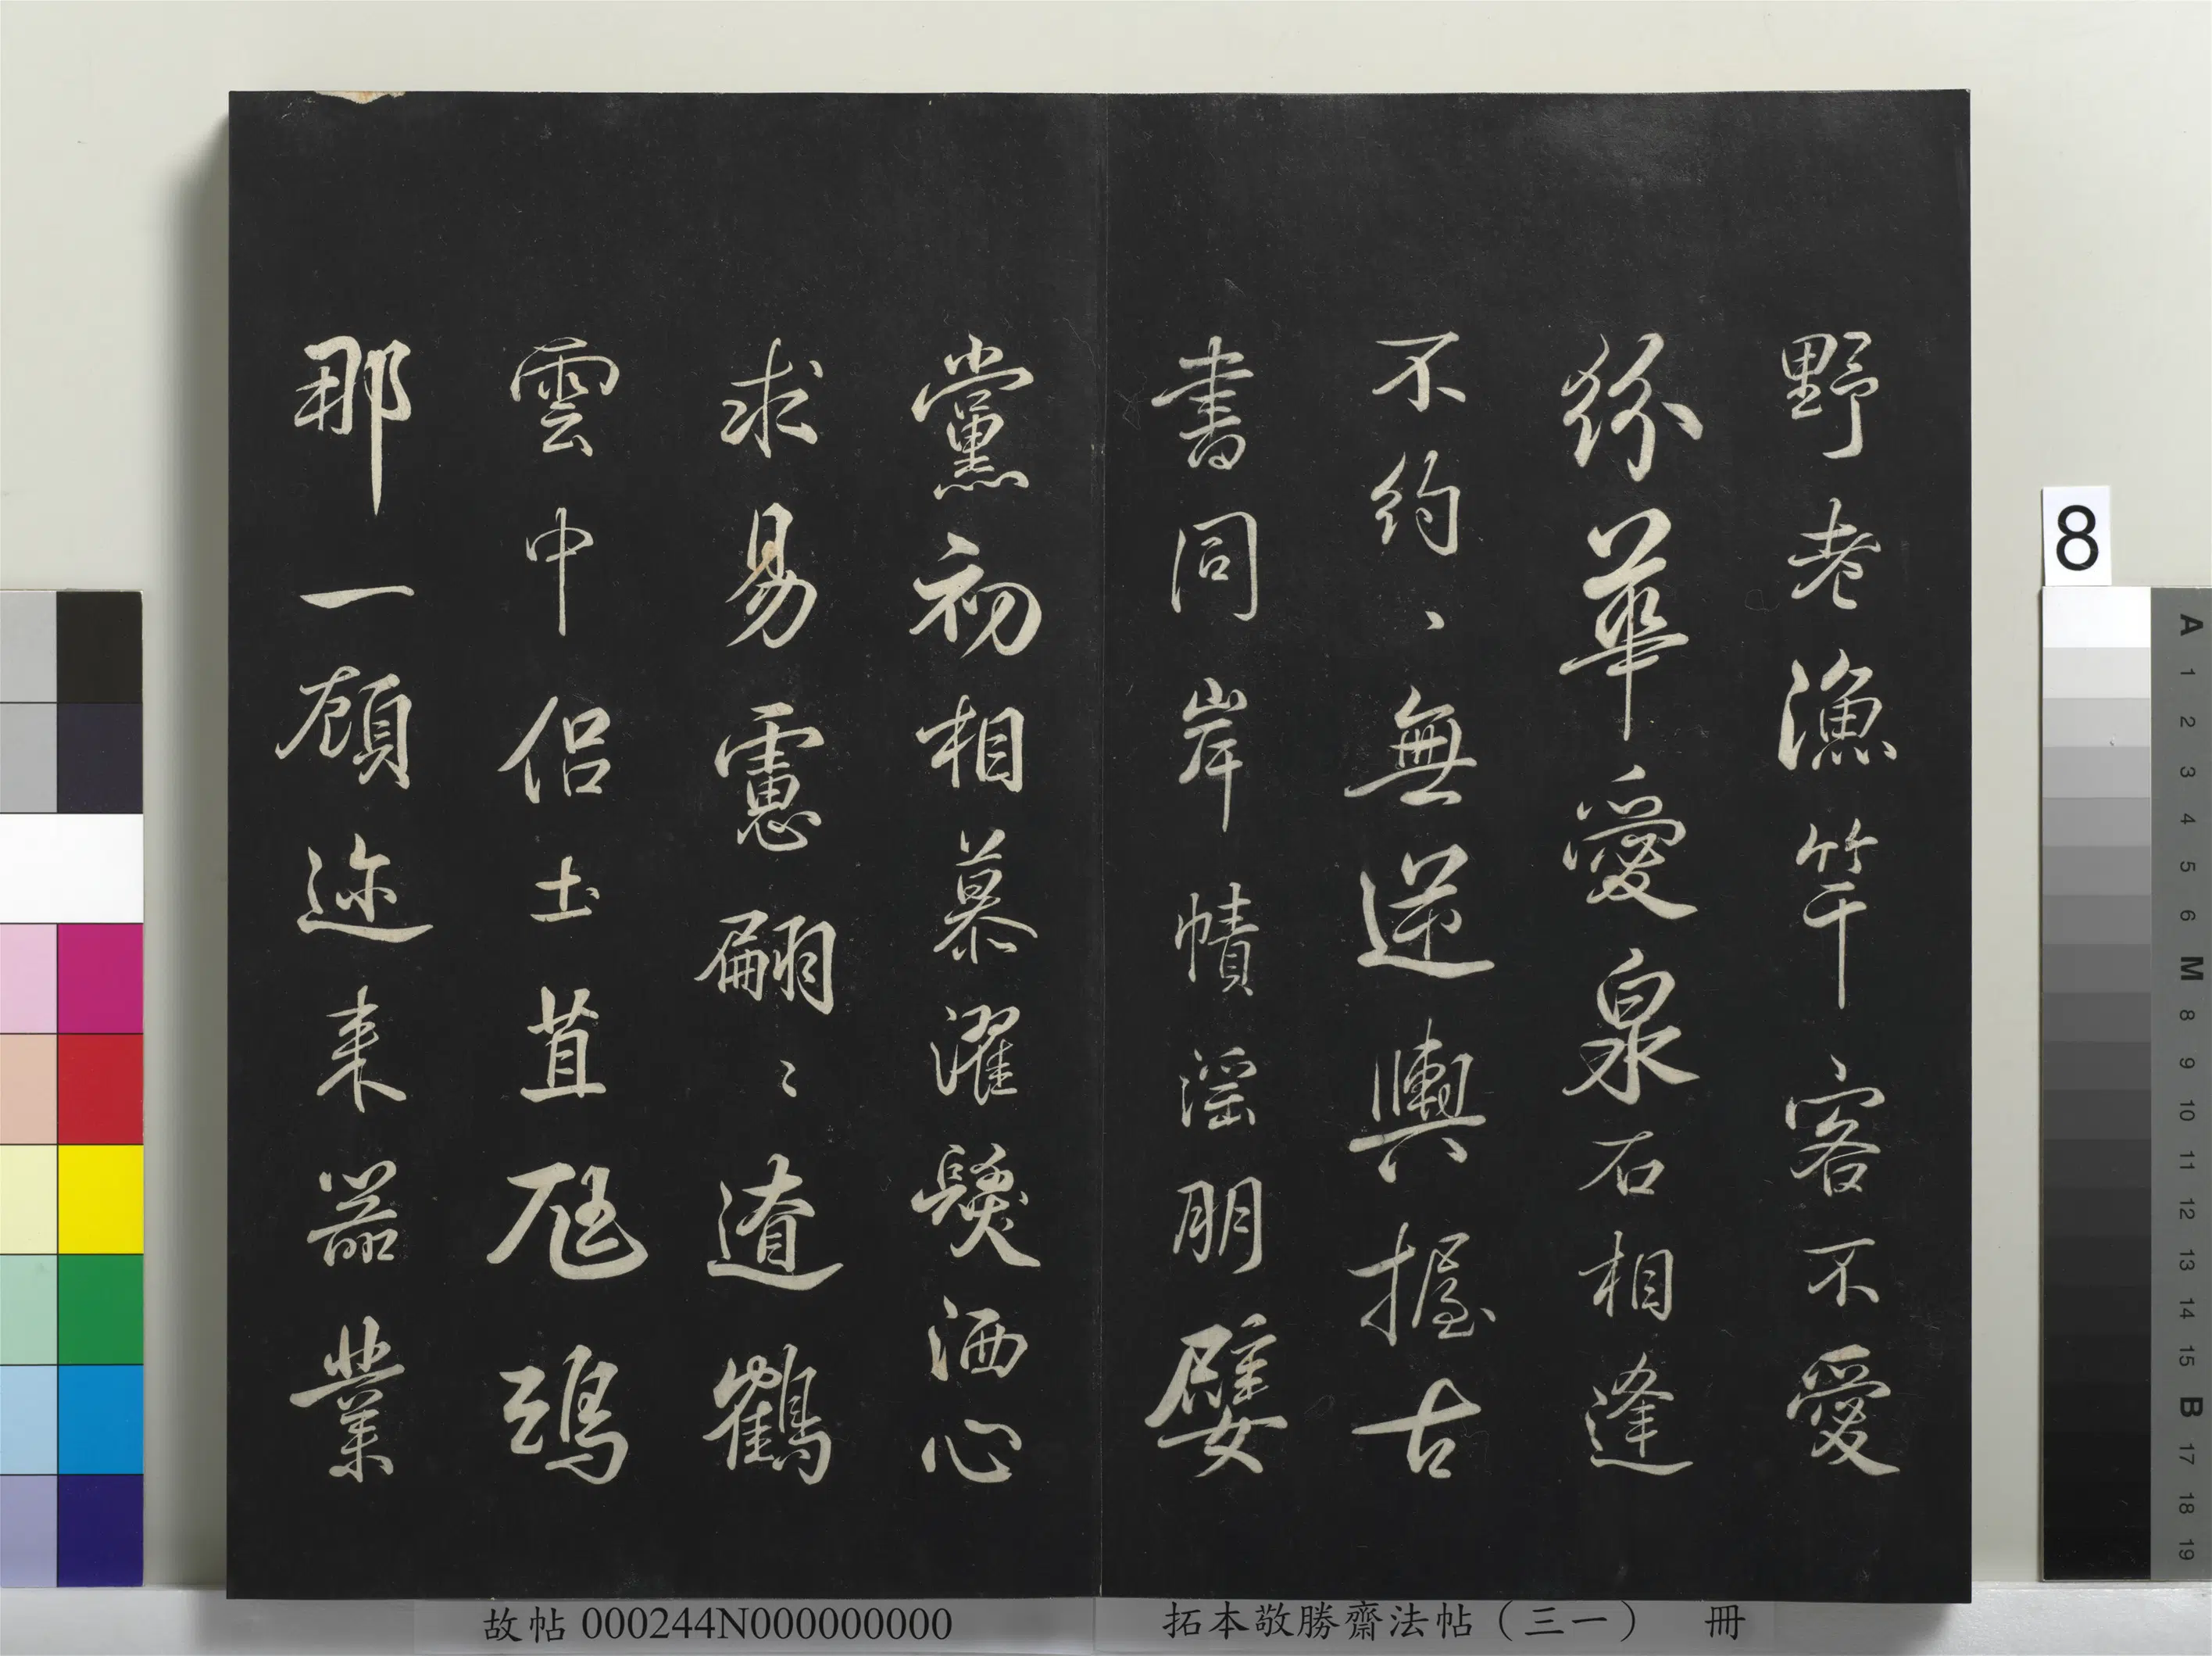 野老漁竿客不愛
紛華愛泉石相逢
不約、無逆輿握古
書同岸幘滛朋嬖
黨初相慕濯髮洒心
求易慮翩〻遼鶴
雲中侶土苴
那一顧迩来噐業
8
A 1 2 3 4 5 6 M 8 9 10 11 12 13 14 15 B 17 18 19
故帖 000244N000000000
拓本敬勝齋法帖（三一） 冊